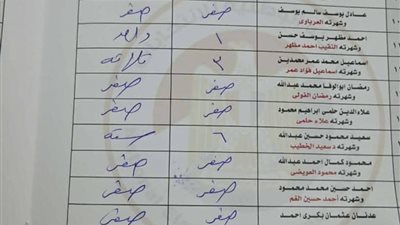 عادل يوسف سالم يوسف صفر صفر
وشهرته العرباوى
احمد مظهر يوسف حسن ١ واحد
وشهرته النقيب احمد مظهر
اسماعيل محمد عمر محمدين ٣ ثلاثه
وشهرته اسماعيل فؤاد عمر
رمضان ابوالوفا محمد عبدالله صفر صفر
وشهرته رمضان الفولى
علاءالدين حلمى ابراهيم محمود صفر صفر
وشهرته علاء حلمى
سعيد محمود حسين عبدالله ٦ سته
وشهرته د سعيد الخطيب
محمود كمال احمد عبدالله صفر صفر
وشهرته محمود العويضى
احمد حسين محمد محمود صفر صفر
وشهرته احمد حسين الفم
عدنان عثمان بكرى احمد صفر صفر